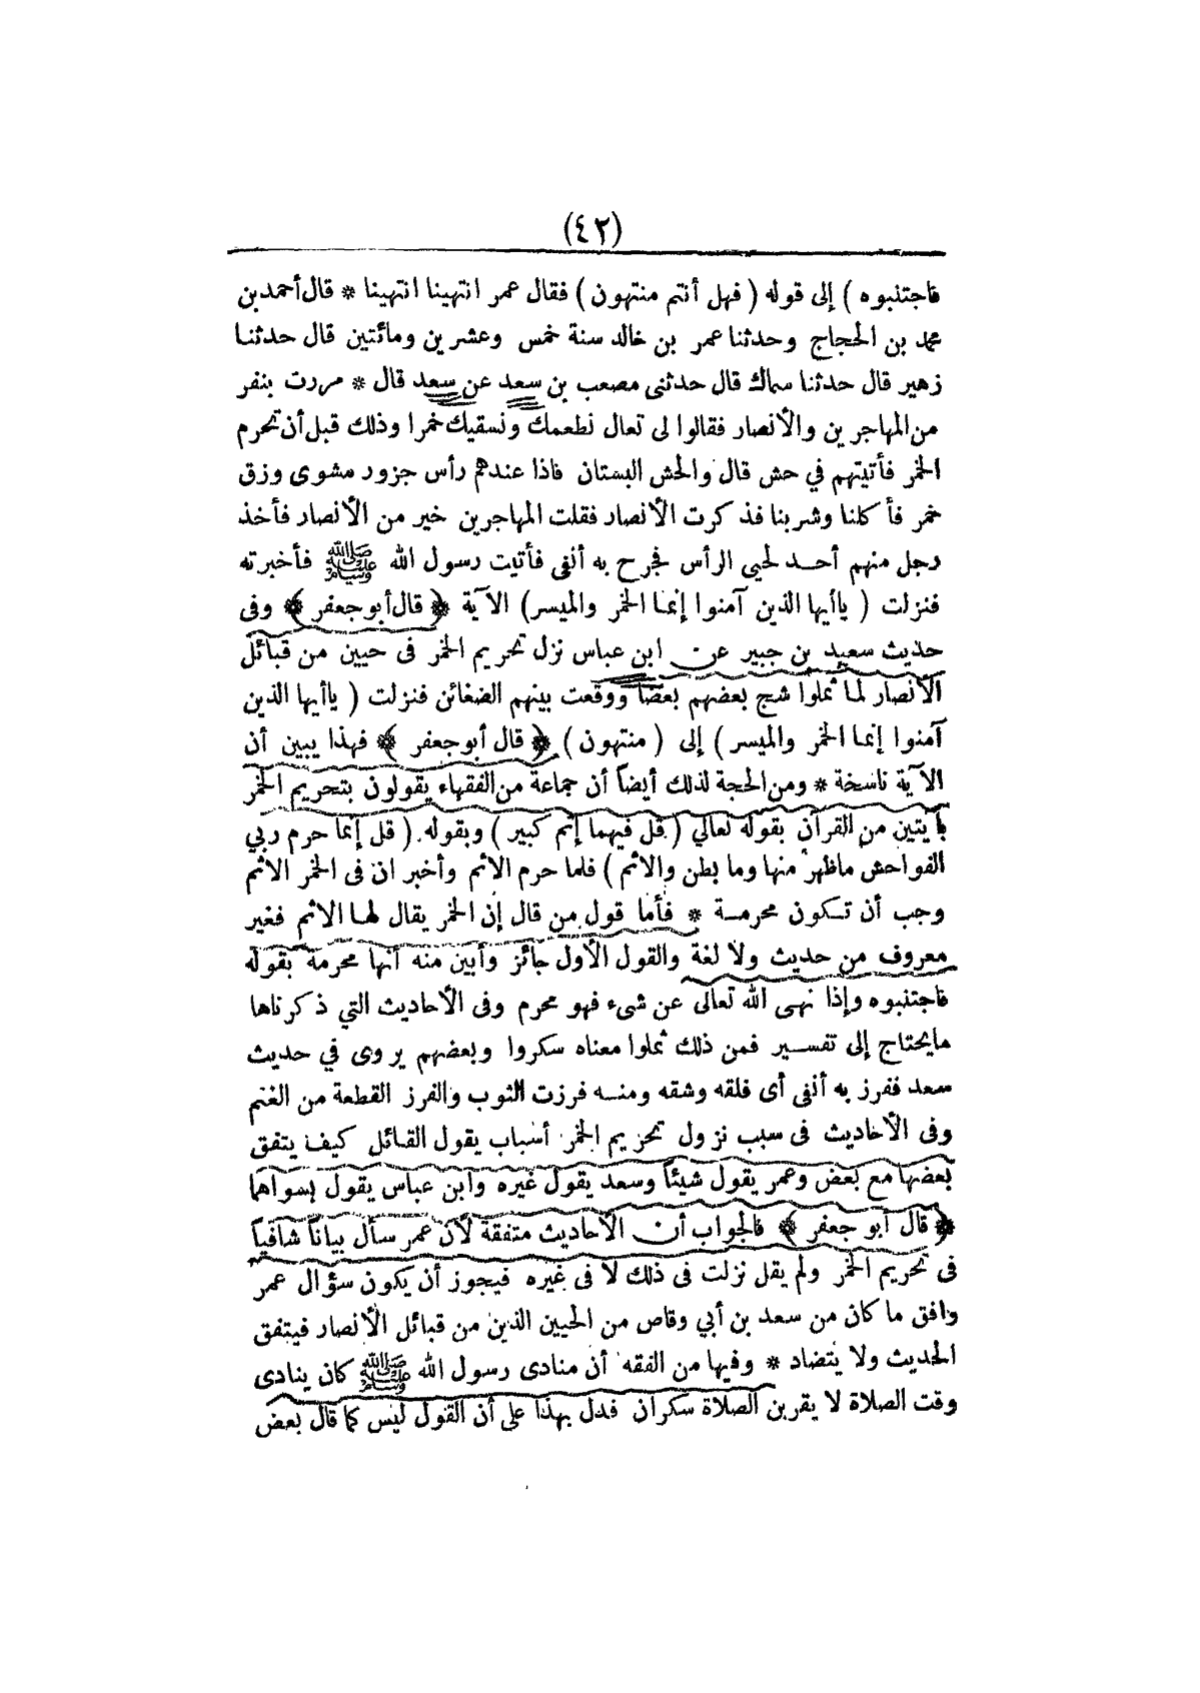 (٤٢)
فاجتنبوه ) إلى قوله ( فهل أنتم منتهون ) فقال عمر انتهينا انتهينا * قال أحمد بن
محمد بن الحجاج وحدثنا عمر بن خالد سنة خمس وعشرين ومائتين قال حدثنا
زهير قال حدثنا سماك قال حدثنى مصعب بن سعد عن سعد قال * مررت بنفر
من المهاجرين والأنصار فقالوا لى تعال نطعمك ونسقيك خمرا وذلك قبل أن تحرم
الخمر فأتيتهم في حش قال والحش البستان فاذا عندهم رأس جزور مشوى وزق
خمر فأكلنا وشربنا فذكرت الأنصار فقلت المهاجرين خير من الأنصار فأخذ
رجل منهم أحد لحيى الرأس فجرح به أنفى فأتيت رسول الله ﷺ فأخبرته
فنزلت ( ياأيها الذين آمنوا إنما الخمر والميسر) الآية ﴿ قال أبو جعفر ﴾ وفى
حديث سعيد بن جبير عن ابن عباس نزل تحريم الخمر فى حيين من قبائل
الأنصار لما ثملوا شج بعضهم بعضاً ووقعت بينهم الضغائن فنزلت ( ياأيها الذين
آمنوا إنما الخمر والميسر ) إلى ( منتهون ) ﴿ قال أبو جعفر ﴾ فهذا يبين أن
الآية ناسخة * ومن الحجة لذلك أيضاً أن جماعة من الفقهاء يقولون بتحريم الخمر
بآيتين من القرآن بقوله تعالي ( قل فيهما إثم كبير ) وبقوله ( قل إنما حرم ربي
الفواحش ماظهر منها وما بطن والاثم ) فلما حرم الاثم وأخبر ان فى الخمر الاثم
وجب أن تكون محرمة * فأما قول من قال إن الخمر يقال لها الاثم فغير
معروف من حديث ولا لغة والقول الأول جائز وأبين منه أنها محرمة بقوله
فاجتنبوه وإذا نهى الله تعالى عن شىء فهو محرم وفى الأحاديث التي ذكرناها
مايحتاج إلى تفسير فمن ذلك ثملوا معناه سكروا وبعضهم يروى في حديث
سعد ففرز به أنفى أى فلقه وشقه ومنه فرزت الثوب والفرز القطعة من الغنم
وفى الأحاديث فى سبب نزول تحريم الخمر أسباب يقول القائل كيف يتفق
بعضها مع بعض وعمر يقول شيئاً وسعد يقول غيره وابن عباس يقول بسواهما
﴿ قال أبو جعفر ﴾ فالجواب أن الأحاديث متفقة لأن عمر سأل بياناً شافياً
فى تحريم الخمر ولم يقل نزلت فى ذلك لا فى غيره فيجوز أن يكون سؤال عمر
وافق ما كان من سعد بن أبي وقاص من الحيين الذين من قبائل الأنصار فيتفق
الحديث ولا يتضاد * وفيها من الفقه أن منادى رسول الله ﷺ كان ينادى
وقت الصلاة لا يقربن الصلاة سكران فدل بهذا على أن القول ليس كما قال بعض